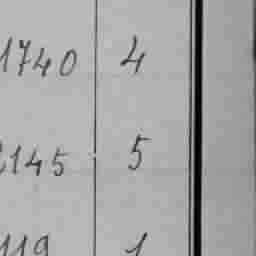 1740 4
145 5
119 1